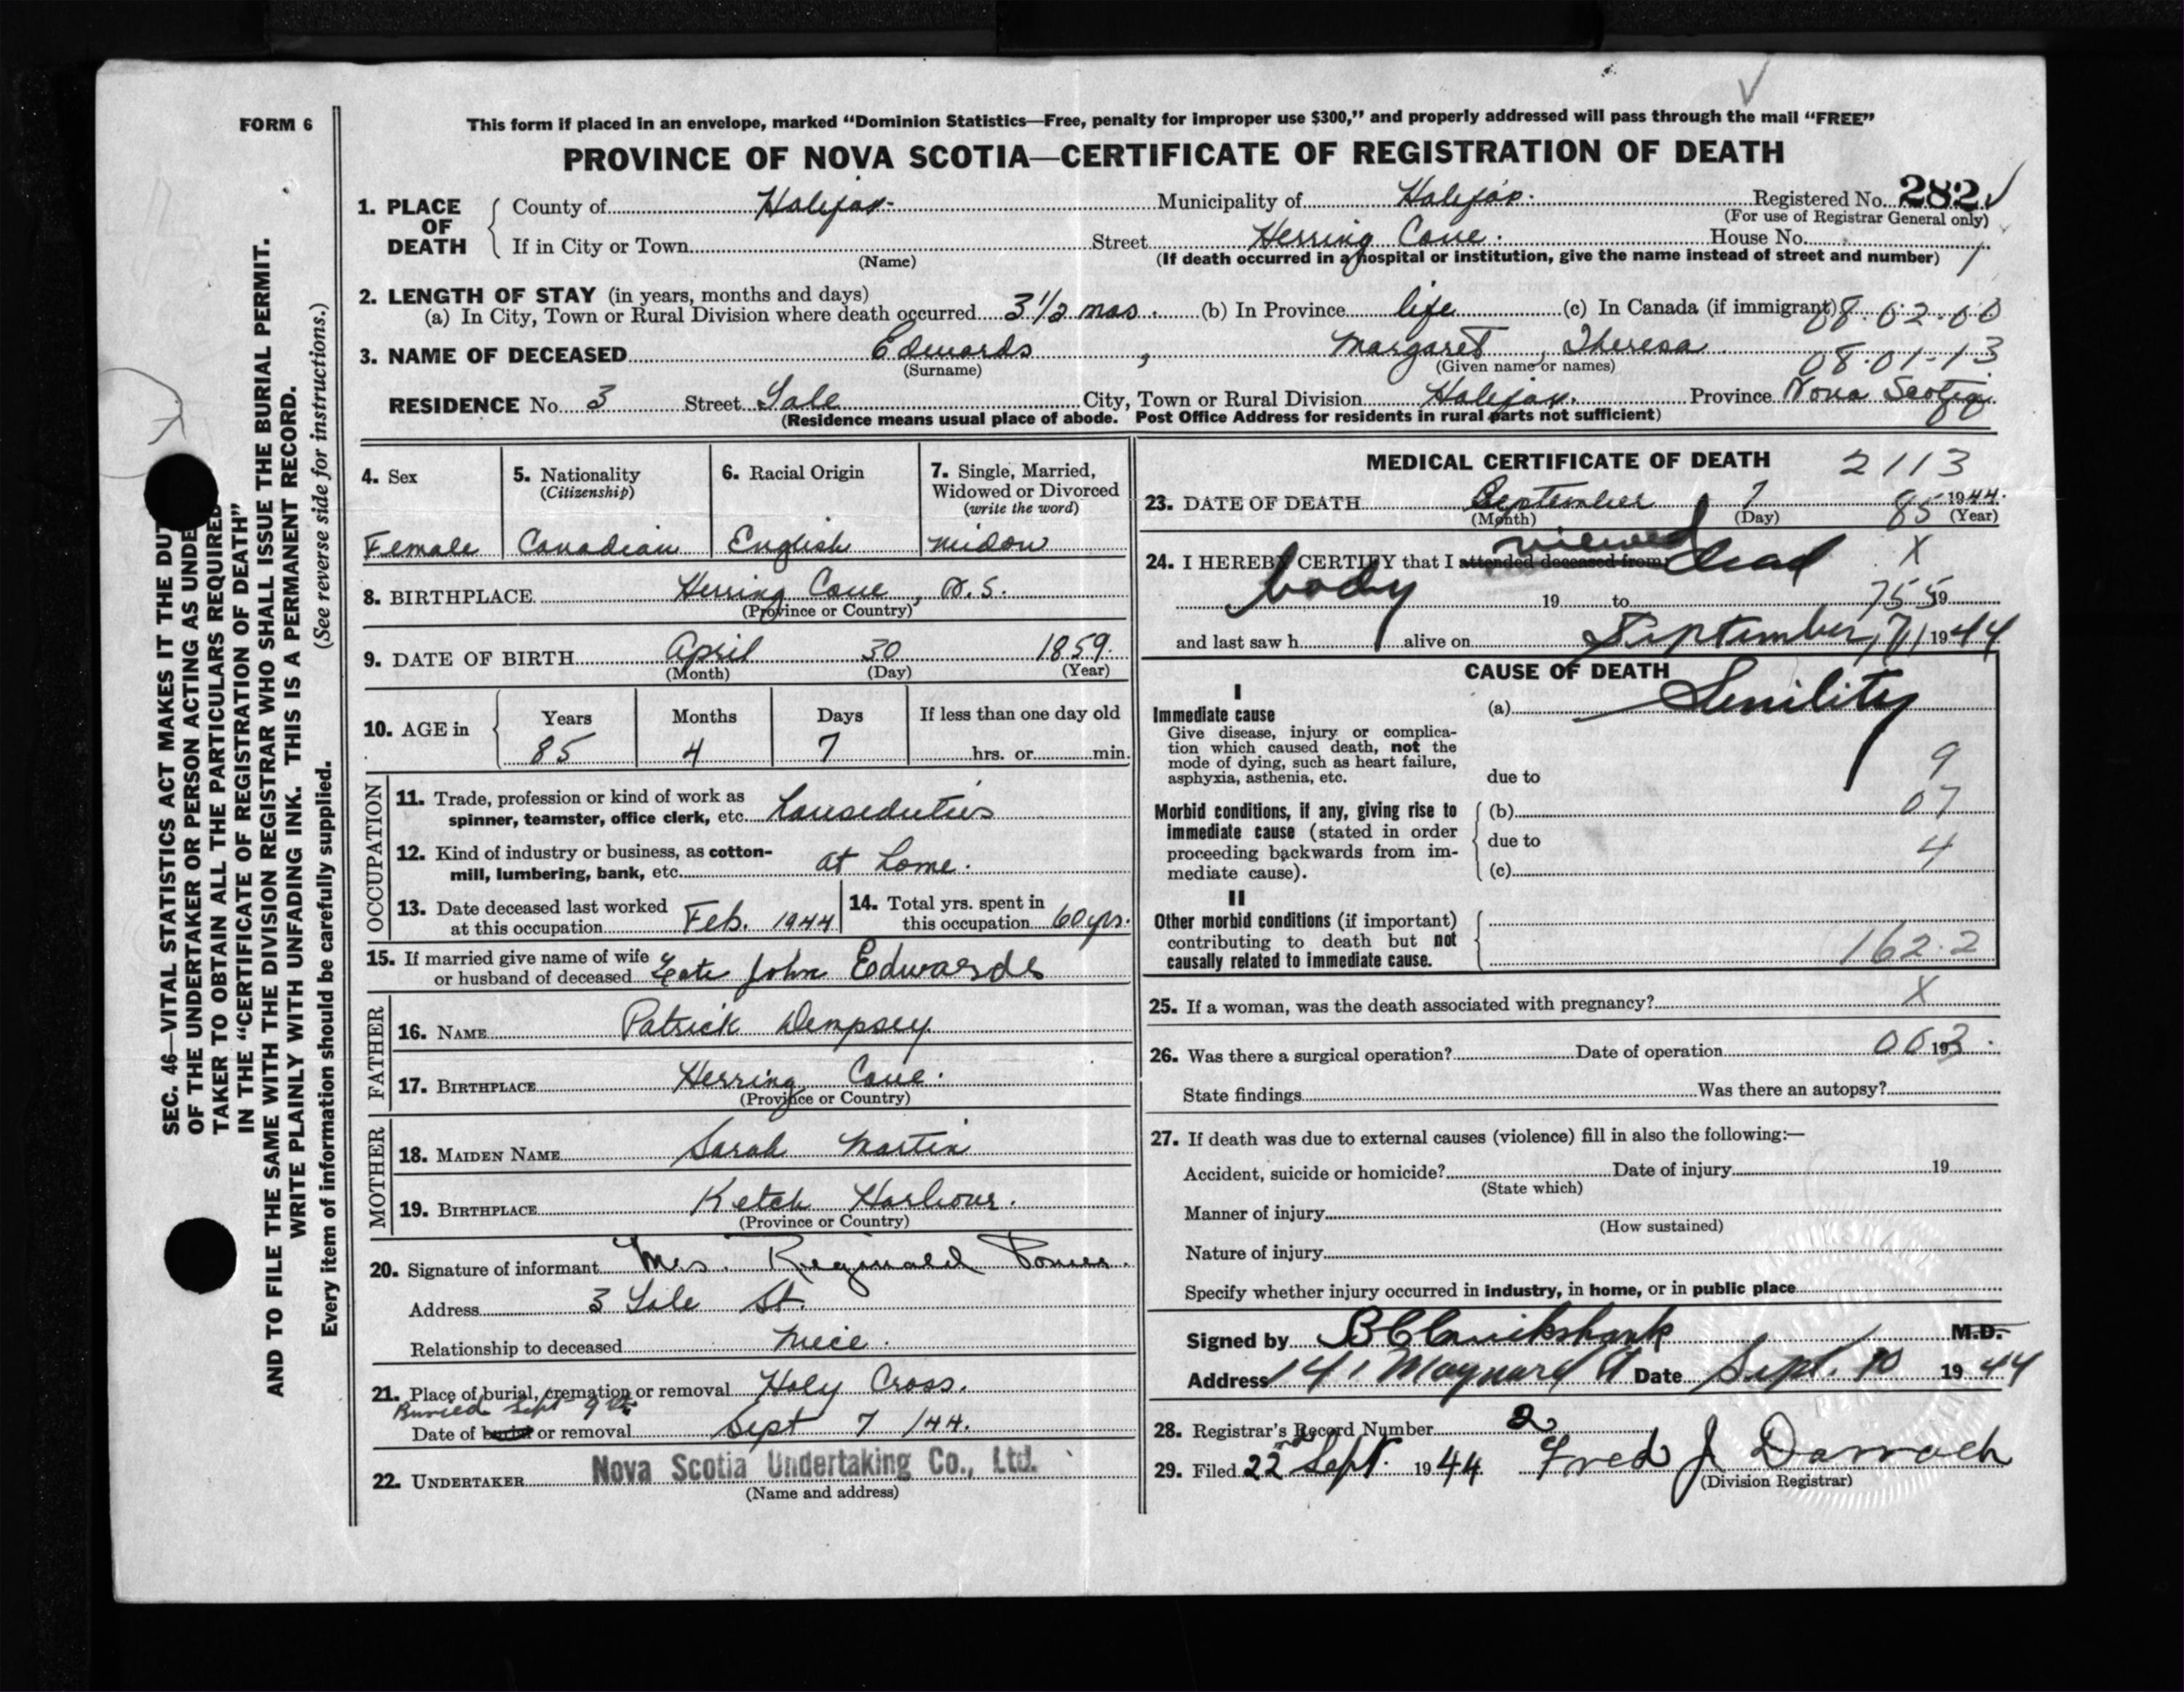 FORM 6
This form if placed in an envelope, marked “Dominion Statistics—Free, penalty for improper use $300,” and properly addressed will pass through the mail “FREE”
PROVINCE OF NOVA SCOTIA—CERTIFICATE OF REGISTRATION OF DEATH
SEC. 46—VITAL STATISTICS ACT MAKES IT THE DUT
OF THE UNDERTAKER OR PERSON ACTING AS UNDE
TAKER TO OBTAIN ALL THE PARTICULARS REQUIRED
IN THE “CERTIFICATE OF REGISTRATION OF DEATH”
AND TO FILE THE SAME WITH THE DIVISION REGISTRAR WHO SHALL ISSUE THE BURIAL PERMIT.
WRITE PLAINLY WITH UNFADING INK. THIS IS A PERMANENT RECORD.
Every item of information should be carefully supplied. (See reverse side for instructions.)
1. PLACE OF DEATH County of Halifax Municipality of Halifax. Registered No. 282
(For use of Registrar General only)
If in City or Town Street Herring Cove. House No.
(Name) (If death occurred in a hospital or institution, give the name instead of street and number) 1
2. LENGTH OF STAY (in years, months and days)
(a) In City, Town or Rural Division where death occurred 3 1/2 mos. (b) In Province life (c) In Canada (if immigrant) 08.02.00
3. NAME OF DECEASED Edwards, Margaret, Theresa 08.01-13
(Surname) (Given name or names)
RESIDENCE No. 3 Street Yale City, Town or Rural Division Halifax. Province Nova Scotia
(Residence means usual place of abode. Post Office Address for residents in rural parts not sufficient)
4. Sex 5. Nationality 6. Racial Origin 7. Single, Married,
(Citizenship) Widowed or Divorced
(write the word)
Female Canadian English widow
8. BIRTHPLACE Herring Cove, N.S.
(Province or Country)
9. DATE OF BIRTH April 30 1859.
(Month) (Day) (Year)
10. AGE in Years Months Days If less than one day old
85 4 7 hrs. or min.
OCCUPATION
11. Trade, profession or kind of work as
spinner, teamster, office clerk, etc. houseduties
12. Kind of industry or business, as cotton-
mill, lumbering, bank, etc. at home.
13. Date deceased last worked 14. Total yrs. spent in
at this occupation Feb. 1944 this occupation 60 yrs.
15. If married give name of wife
or husband of deceased Late John Edwards
FATHER
16. NAME Patrick Dempsey
17. BIRTHPLACE Herring Cove.
(Province or Country)
MOTHER
18. MAIDEN NAME Sarah Martin
19. BIRTHPLACE Ketch Harbour.
(Province or Country)
20. Signature of informant Mrs. Reginald Power.
Address 3 Yale St.
Relationship to deceased niece.
21. Place of burial, cremation or removal Holy Cross.
Buried Sept 9th
Date of burial or removal Sept 7 /44.
22. UNDERTAKER Nova Scotia Undertaking Co., Ltd.
(Name and address)
MEDICAL CERTIFICATE OF DEATH 2113
23. DATE OF DEATH September 7 1944.
(Month) (Day) 85 (Year)
24. I HEREBY CERTIFY that I attended deceased from viewed dead X
body 19 to 19 755
and last saw h alive on September, 7, 1944
CAUSE OF DEATH
I
Immediate cause (a) Senility
Give disease, injury or complica-
tion which caused death, not the
mode of dying, such as heart failure, 9
asphyxia, asthenia, etc. due to
Morbid conditions, if any, giving rise to (b) 07
immediate cause (stated in order due to
proceeding backwards from im- 4
mediate cause). (c)
II
Other morbid conditions (if important)
contributing to death but not 162.2
causally related to immediate cause.
25. If a woman, was the death associated with pregnancy? X
26. Was there a surgical operation? Date of operation 19 003
State findings Was there an autopsy?
27. If death was due to external causes (violence) fill in also the following:—
Accident, suicide or homicide? Date of injury 19
(State which)
Manner of injury
(How sustained)
Nature of injury
Specify whether injury occurred in industry, in home, or in public place
Signed by Cruikshank M.D.
Address 141 Maynard St Date Sept. 10 1944
28. Registrar’s Record Number 2
29. Filed 22nd Sept. 1944 Fred J Darroch
(Division Registrar)